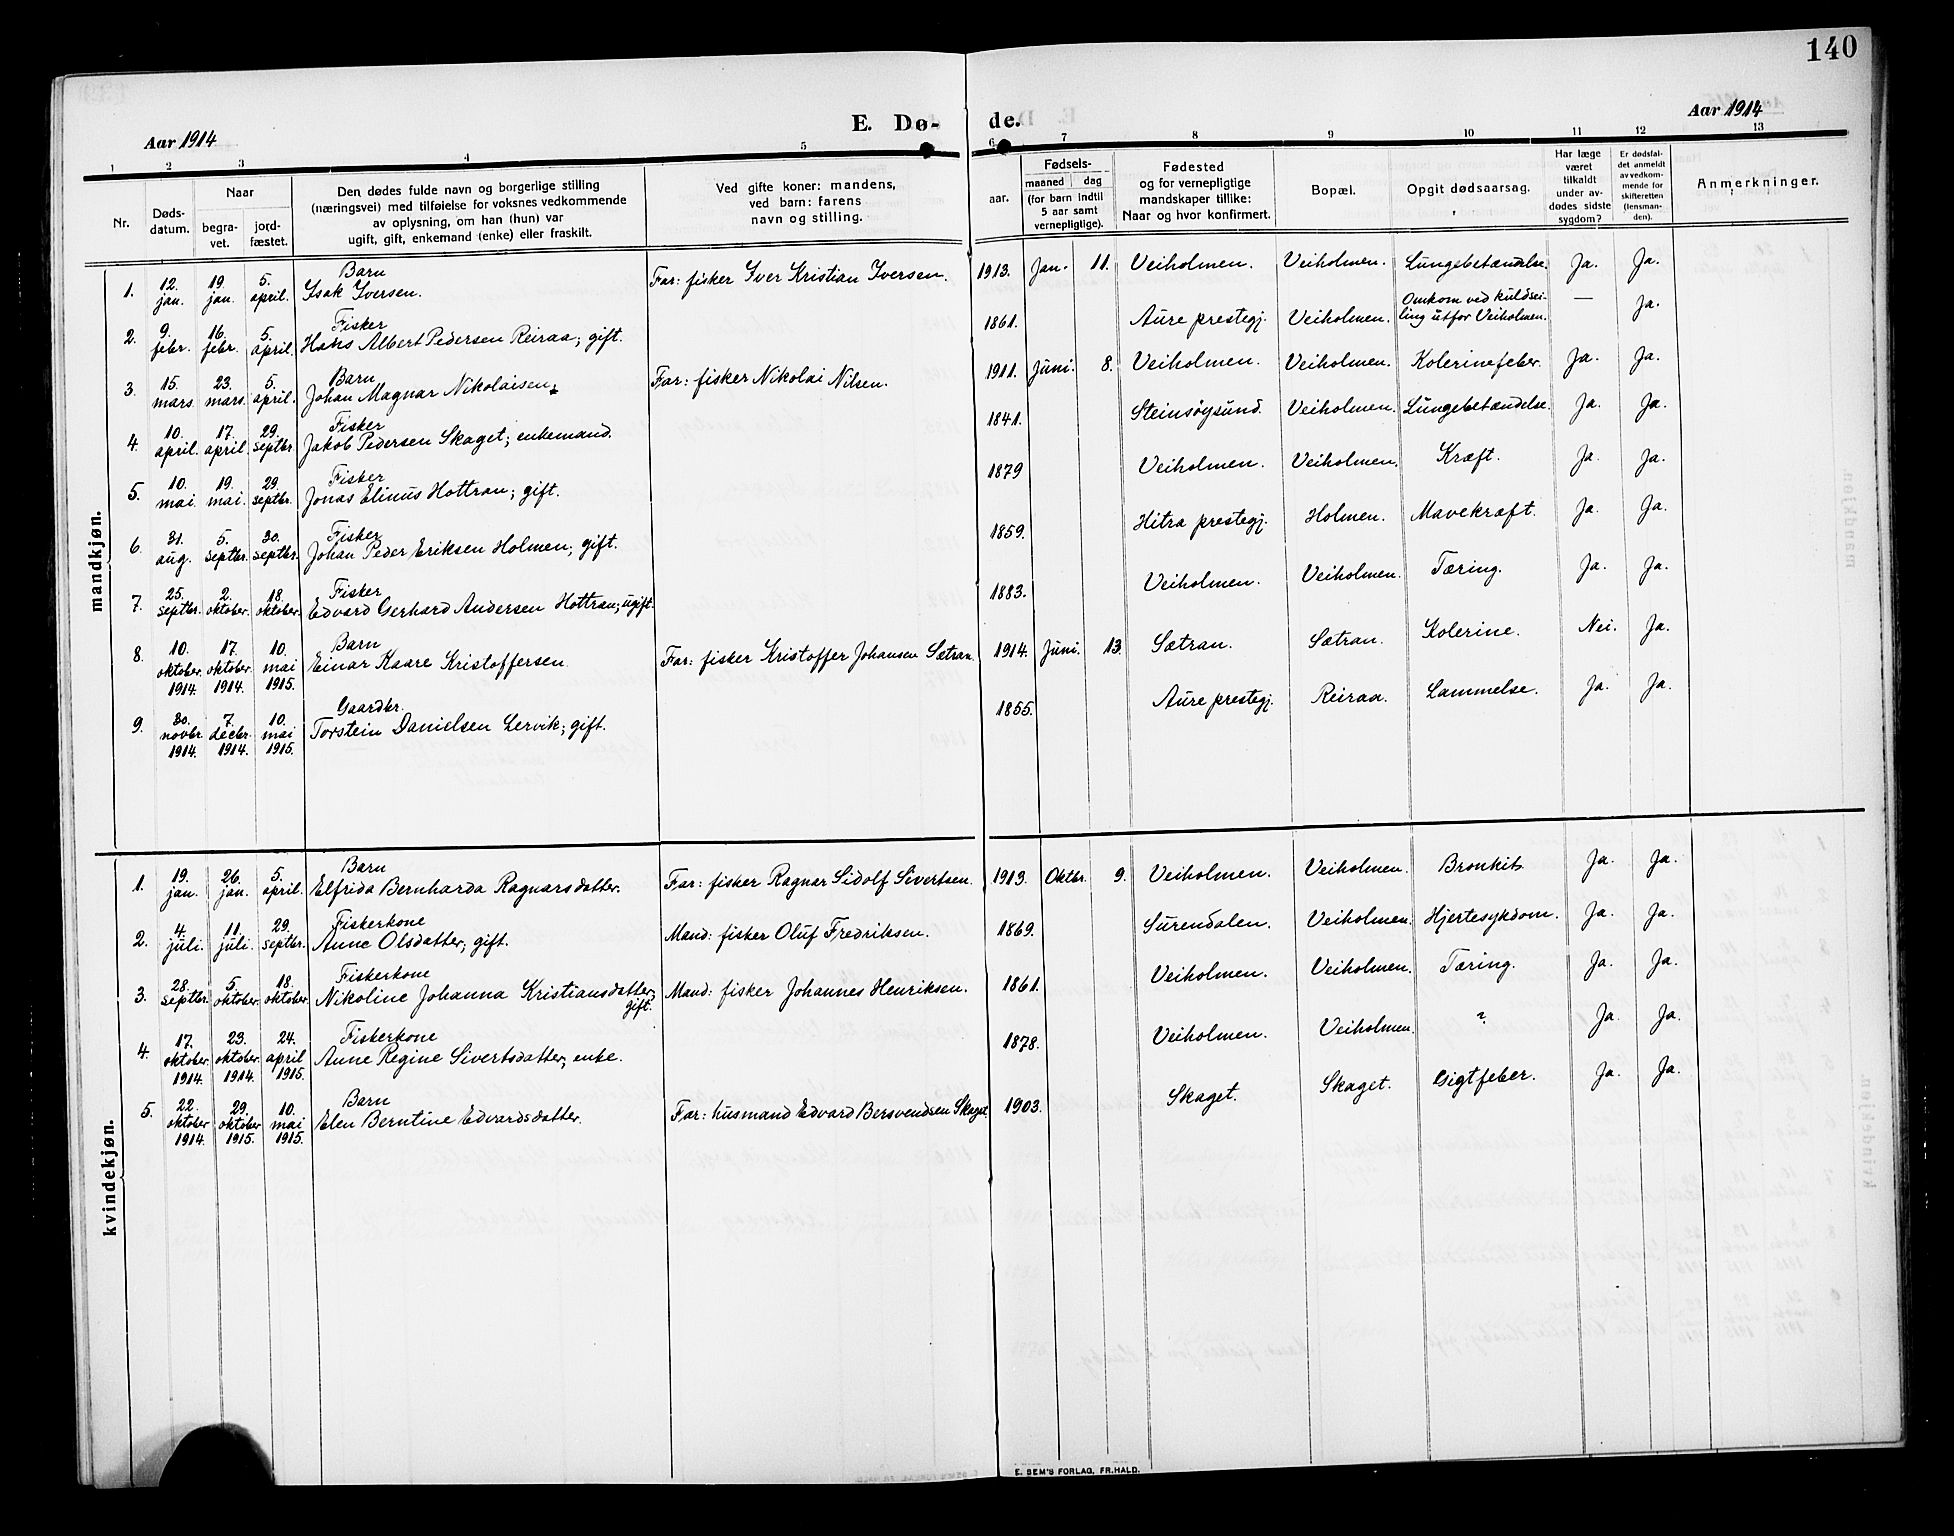 140
E. Dø- de.
Aar 1914
Aar 1914
1 2 3 4 5 6 7 8 9 10 11 12 13
Nr.
Døds-
datum.
Naar
begra-
vet.
jord-
fæstet.
Den dødes fulde navn og borgerlige stilling
(næringsvei) med tilføielse for voksnes vedkommende
av oplysning, om han (hun) var
ugift, gift, enkemand (enke) eller fraskilt.
Ved gifte koner: mandens,
ved barn: farens
navn og stilling.
aar.
Fødsels-
maaned dag
(for barn indtil
5 aar samt
vernepligtige).
Fødested
og for vernepligtige
mandskaper tillike:
Naar og hvor konfirmert.
Bopæl.
Opgit dødsaarsag.
Har læge
været
tilkaldt
under av-
dødes sidste
sygdom?
Er dødsfal-
det anmeldt
av vedkom-
mende for
skifteretten
(lensman-
den).
Anmerkninger.
mandkjøn.
1. 12. jan. 19. jan. 5. april. Barn
Isak Iversen. Far: fisker Iver Kristian Iversen. 1913. Jan. 11. Veiholmen. Veiholmen. Lungebetændelse. Ja. Ja.
2. 9. febr. 16. febr. 5. april. Fisker
Hans Albert Pedersen Reiraa; gift. 1861. Aure prestegj. Veiholmen. Omkom ved kuldsei-
ling utfor Veiholmen. — Ja.
3. 15. mars. 23. mars. 5. april. Barn
Johan Magnar Nikolaisen. Far: fisker Nikolai Nilsen. 1911. Juni. 8. Veiholmen. Veiholmen. Kolerinefeber. Ja. Ja.
4. 10. april. 17. april. 29. septbr. Fisker
Jakob Pedersen Skaget; enkemand. 1841. Steinsøysund. Veiholmen. Lungebetændelse. Ja. Ja.
5. 10. mai 19. mai. 29. septbr. Fisker
Jonas Elinus Hottran; gift. 1879 Veiholmen. Veiholmen. Kræft. Ja. Ja.
6. 31. aug. 5. septbr. 30. septbr. Fisker
Johan Peder Eriksen Holmen; gift. 1859. Hitra prestegj. Holmen. Mavekræft. Ja. Ja.
7. 25. septbr. 2. oktober. 18. oktober. Fisker
Edvard Gerhard Andersen Hottran; ugift. 1883. Veiholmen. Veiholmen. Tæring. Ja. Ja.
8. 10. oktober. 1914. 17. oktober. 1914. 10. mai 1915. Barn
Einar Kaare Kristoffersen. Far: fisker Kristoffer Johansen Sætran. 1914. Juni. 13. Sætran. Sætran. Kolerine. Nei. Ja.
9. 30. novbr. 1914. 7. decbr. 1914. 10. mai 1915. Gaardbr.
Torstein Danielsen Lervik; gift. 1855. Aure prestegj. Reiraa. Lammelse. Ja. Ja.
kvindekjøn.
1. 19. jan. 26. jan. 5. april. Barn
Elfrida Bernharda Ragnarsdatter. Far: fisker Ragnar Sidolf Sivertsen. 1913. Oktbr. 9. Veiholmen. Veiholmen. Bronkit. Ja. Ja.
2. 4. juli. 11. juli. 29. septbr. Fiskerkone
Anne Olsdatter; gift. Mand: fisker Oluf Fredriksen. 1869. Surendalen. Veiholmen. Hjertesykdom. Ja. Ja.
3. 28. septbr. 5. oktober. 18. oktober. Fiskerkone
Nikoline Johanna Kristiansdatter;
gift. Mand: fisker Johannes Henriksen. 1861. Veiholmen. Veiholmen. Tæring. Ja. Ja.
4. 17. oktober. 1914. 23. oktober. 1914. 24. april 1915. Fiskerkone
Anne Regine Sivertsdatter; enke. 1878. Veiholmen. Veiholmen. ? Ja. Ja.
5. 22. oktober 1914. 29. oktober 1915. 10. mai 1915. Barn
Elen Berntine Edvardsdatter. Far: husmand Edvard Bersvendsen Skaget. 1903. Skaget. Skaget. Gigtfeber. Ja. Ja.
E. SEM'S FORLAG, FR.HALD.